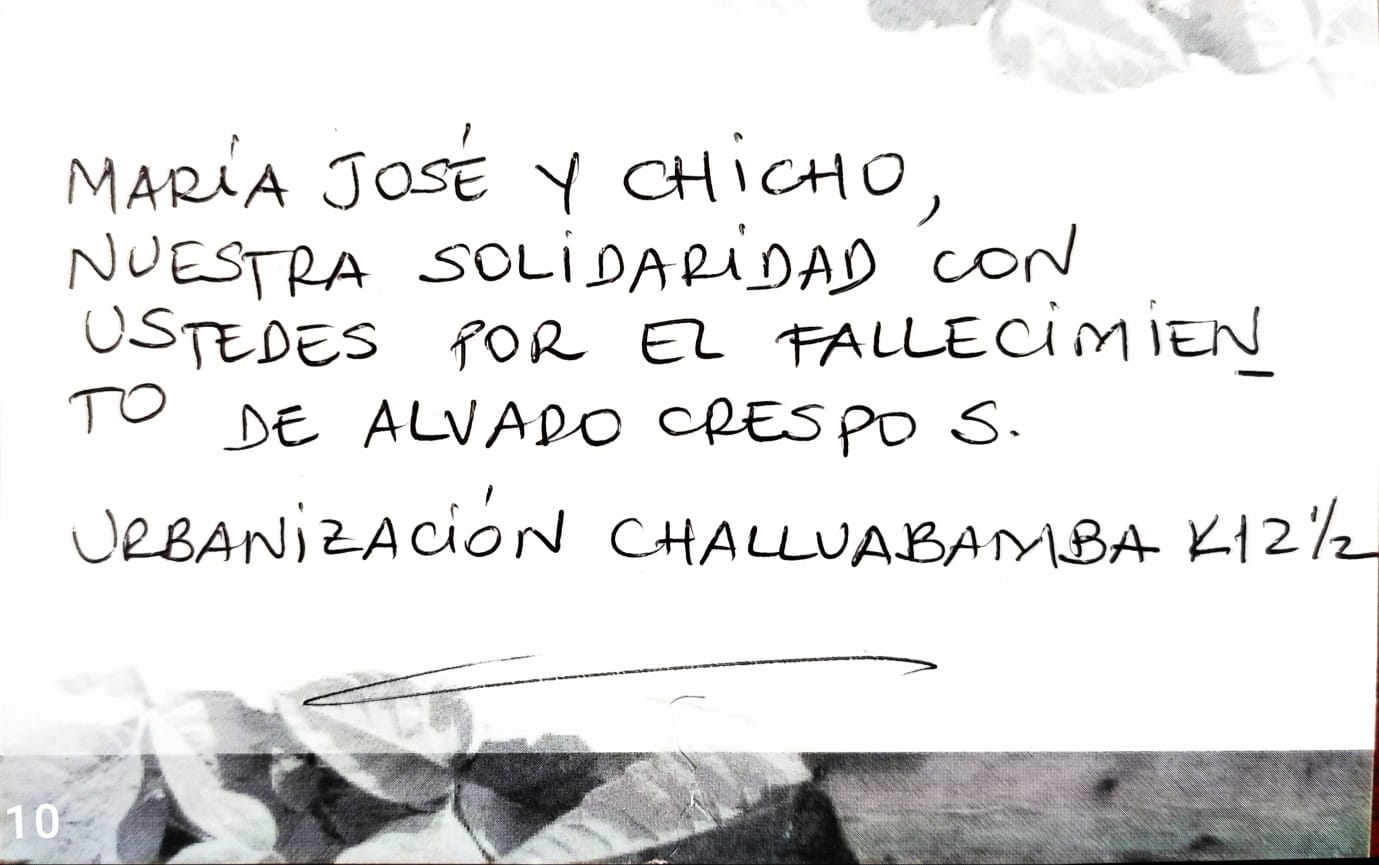 MARÍA JOSÉ Y CHICHO,
NUESTRA SOLIDARIDAD CON
USTEDES POR EL FALLECIMIEN
TO DE ALVARO CRESPO S.
URBANIZACIÓN CHALLUABAMBA K12 1/2
10